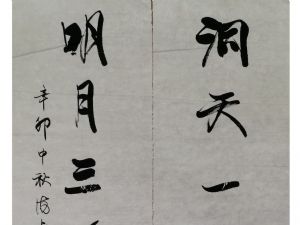 洞天一
明月三
辛卯中秋